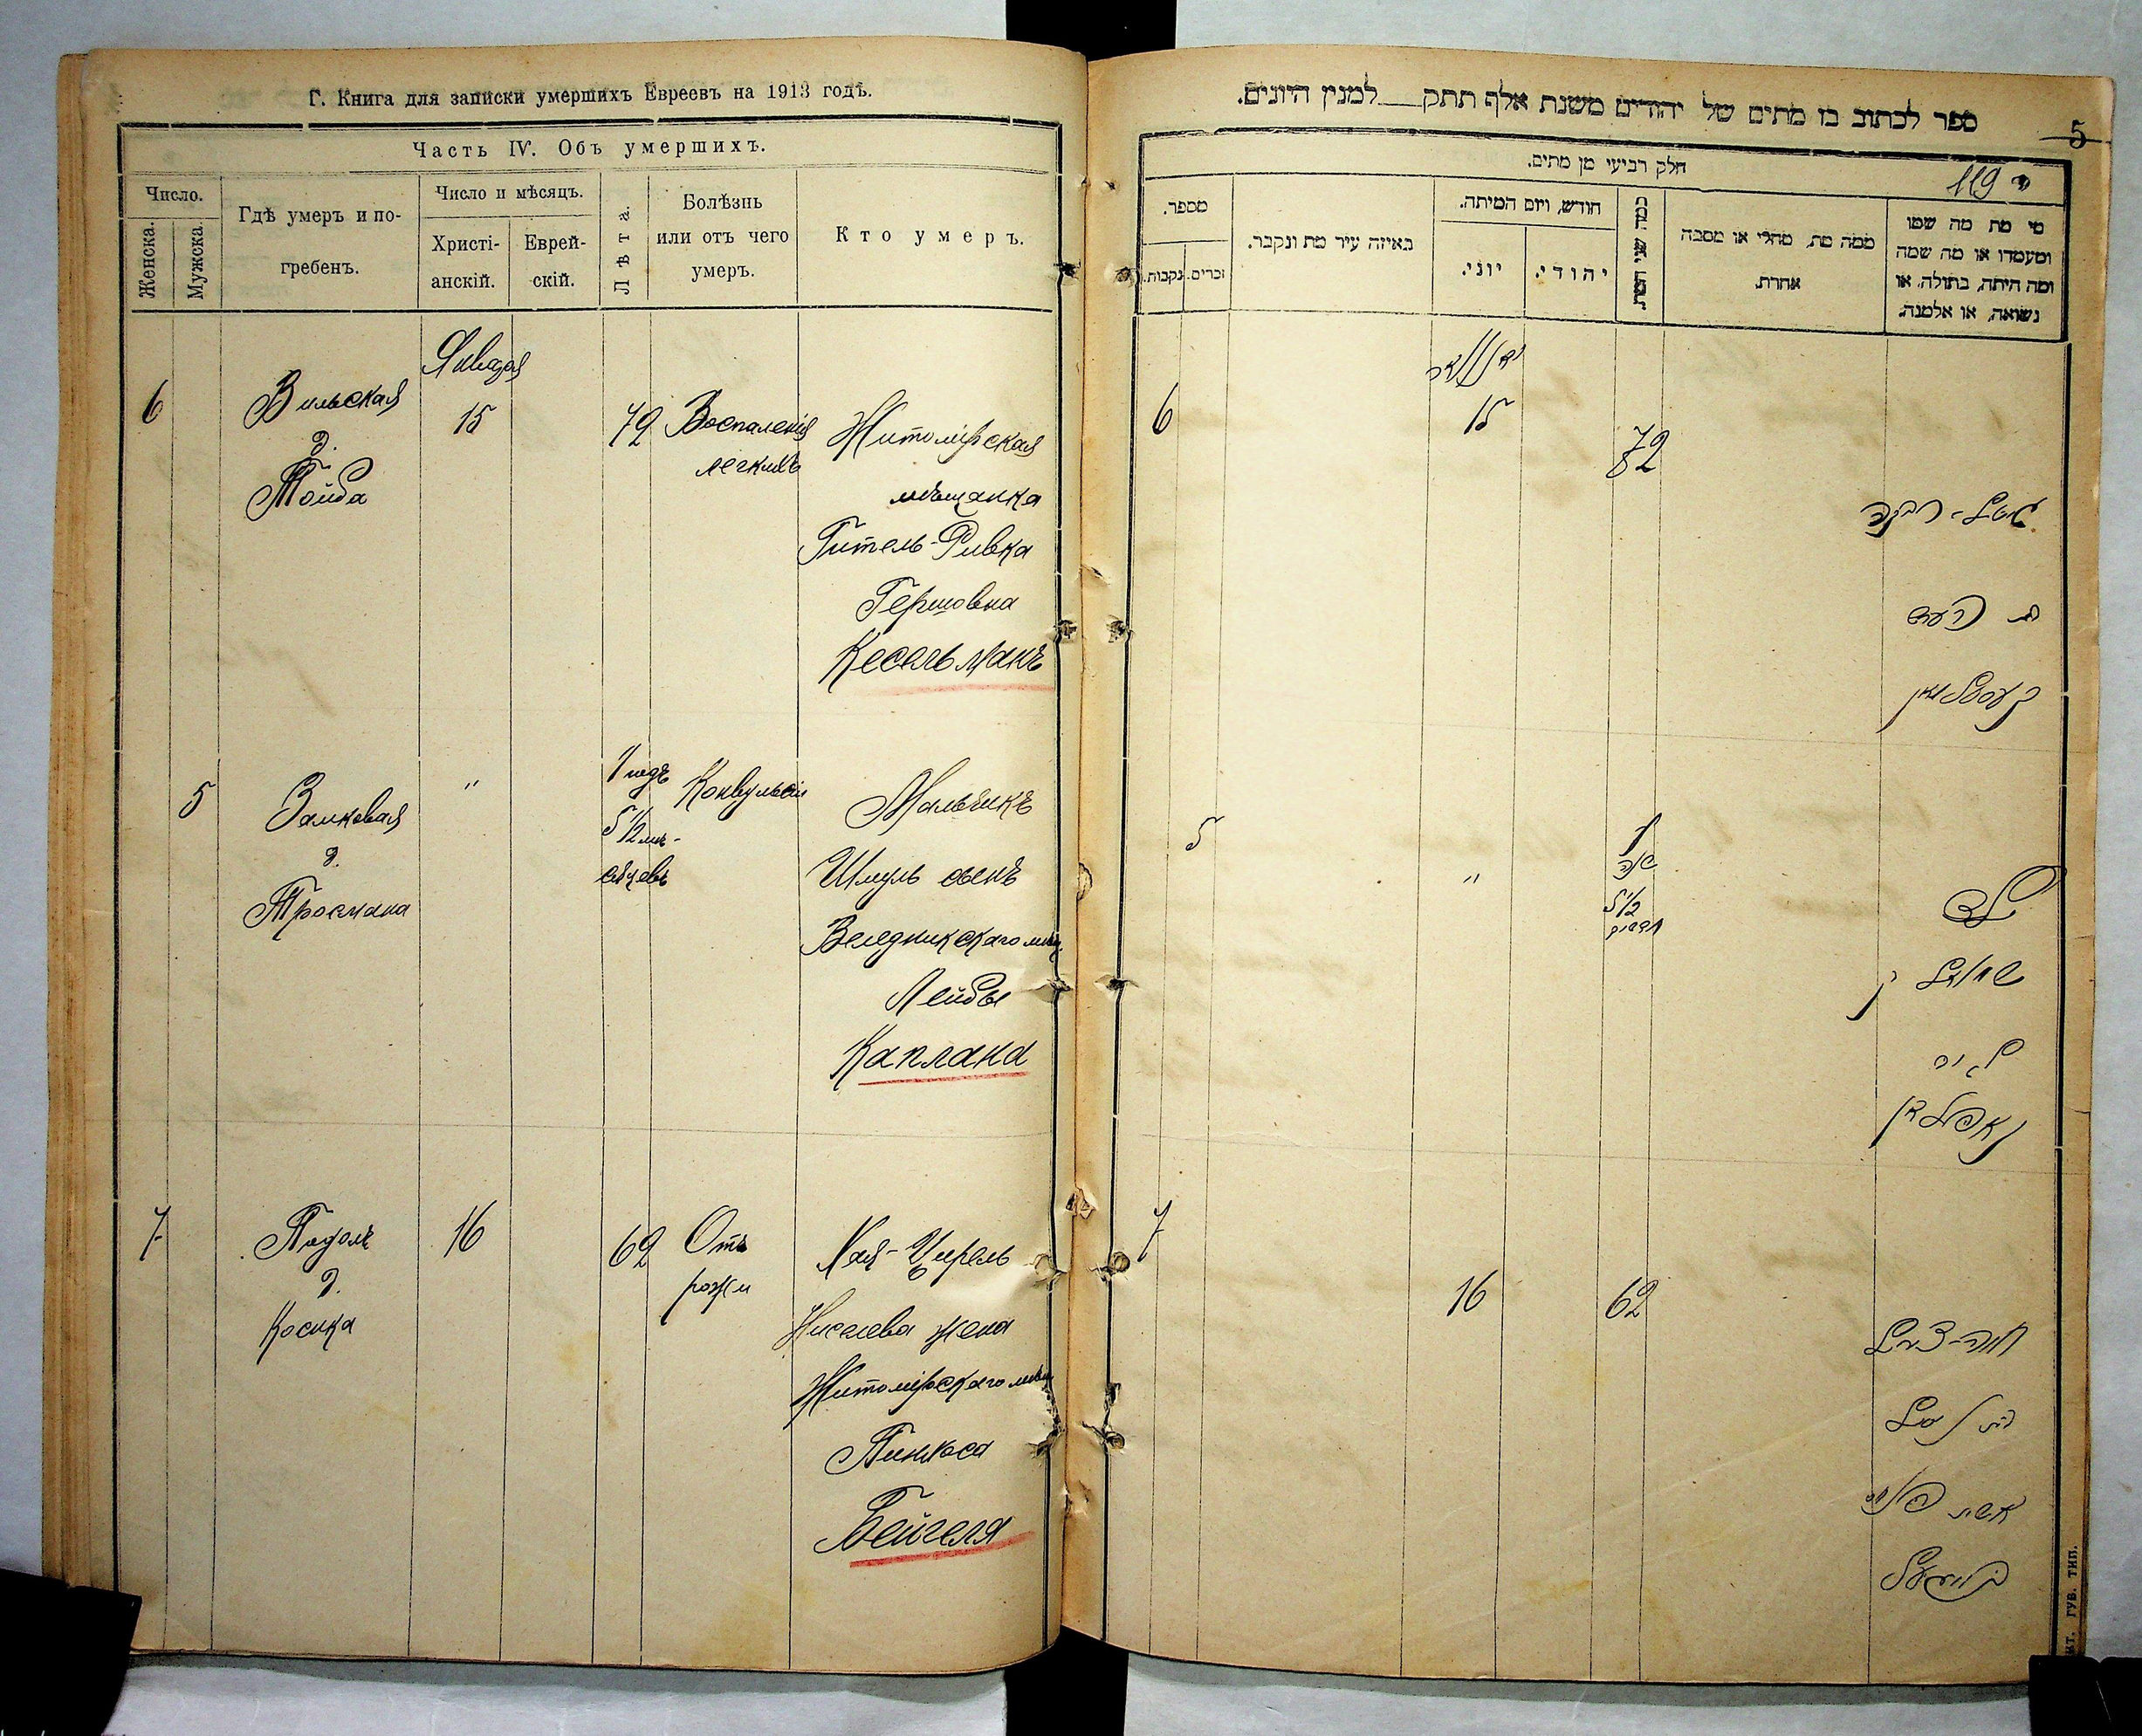 Г. Книга для записки умершихъ Евреевъ на 1913 годъ.
Часть IV. Объ умершихъ.
Число.
Женска.
Мужска.
Гдѣ умеръ и по-
гребенъ.
Число и мѣсяцъ.
Христі-
анскій.
Еврей-
скій.
Лѣта.
Болѣзнь
или отъ чего
умеръ.
Кто умеръ.
Января
6
Вильская
д.
Тойба
15
72
Воспаленія
легкихъ
Житомірская
мѣщанка
Гитель-Ривка
Гершовна
Кесельманъ
5
Замковая
д.
"
1 годъ
5 1/2 мѣ-
сяцевъ
Конвульсіи
Мальчикъ
Шмуль сынъ
Веледникскаго мѣщ.
Лейбы
Каплана
7
Подолъ
д.
Косика
16
62
Отъ
рожи
Хая-Цирель
Ниселева жена
Житомірскаго мѣщ
Пинхоса
Бейгеля
ספר לכתוב בו מתים של יהודים משנת אלף תתק___למנין היונים.
5
חלק רביעי מן מתים.
119
מספר.
נקבות.
זכרים.
באיזה עיר מת ונקבר.
חודש, ויום המיתה.
יוני.
יהודי.
כמה שני המת.
ממה מת, מחלי או מסבה
אחרת.
מי מת מה שמו
ומעמדו או מה שמה
ומה היתה, בתולה, או
נשואה, או אלמנה.
יאנואר
6
15
72
גיטל-רבקה
בת הערש
קעסעלמאן
5
"
1
שנה
5 1/2
חדשים
ילד
שמואל בן
ליב
קאפלאן
7
16
62
חיה-צירל
בת ניסל
אשת פינחס
בייגעל
ЖИТ. ГУБ. ТИП.